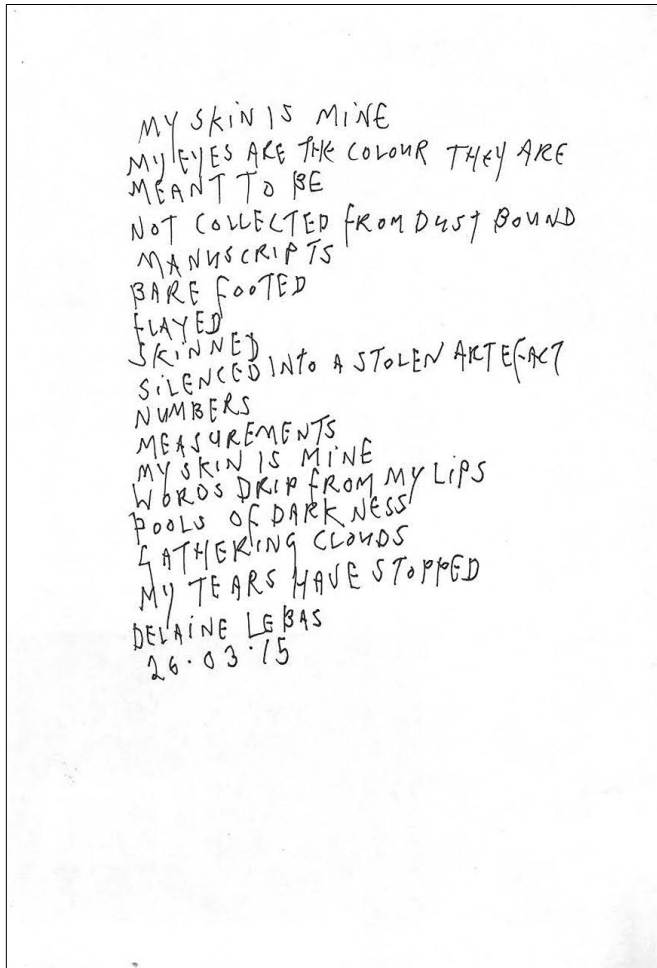 MY SKIN IS MINE
MY EYES ARE THE COLOUR THEY ARE
MEANT TO BE
NOT COLLECTED FROM DUST BOUND
MANUSCRIPTS
BARE FOOTED
FLAYED
SKINNED
SILENCED INTO A STOLEN ARTEFACT
NUMBERS
MEASUREMENTS
MY SKIN IS MINE
WORDS DRIP FROM MY LIPS
POOLS OF DARKNESS
GATHERING CLOUDS
MY TEARS HAVE STOPPED
DELAINE LE BAS
26.03.15